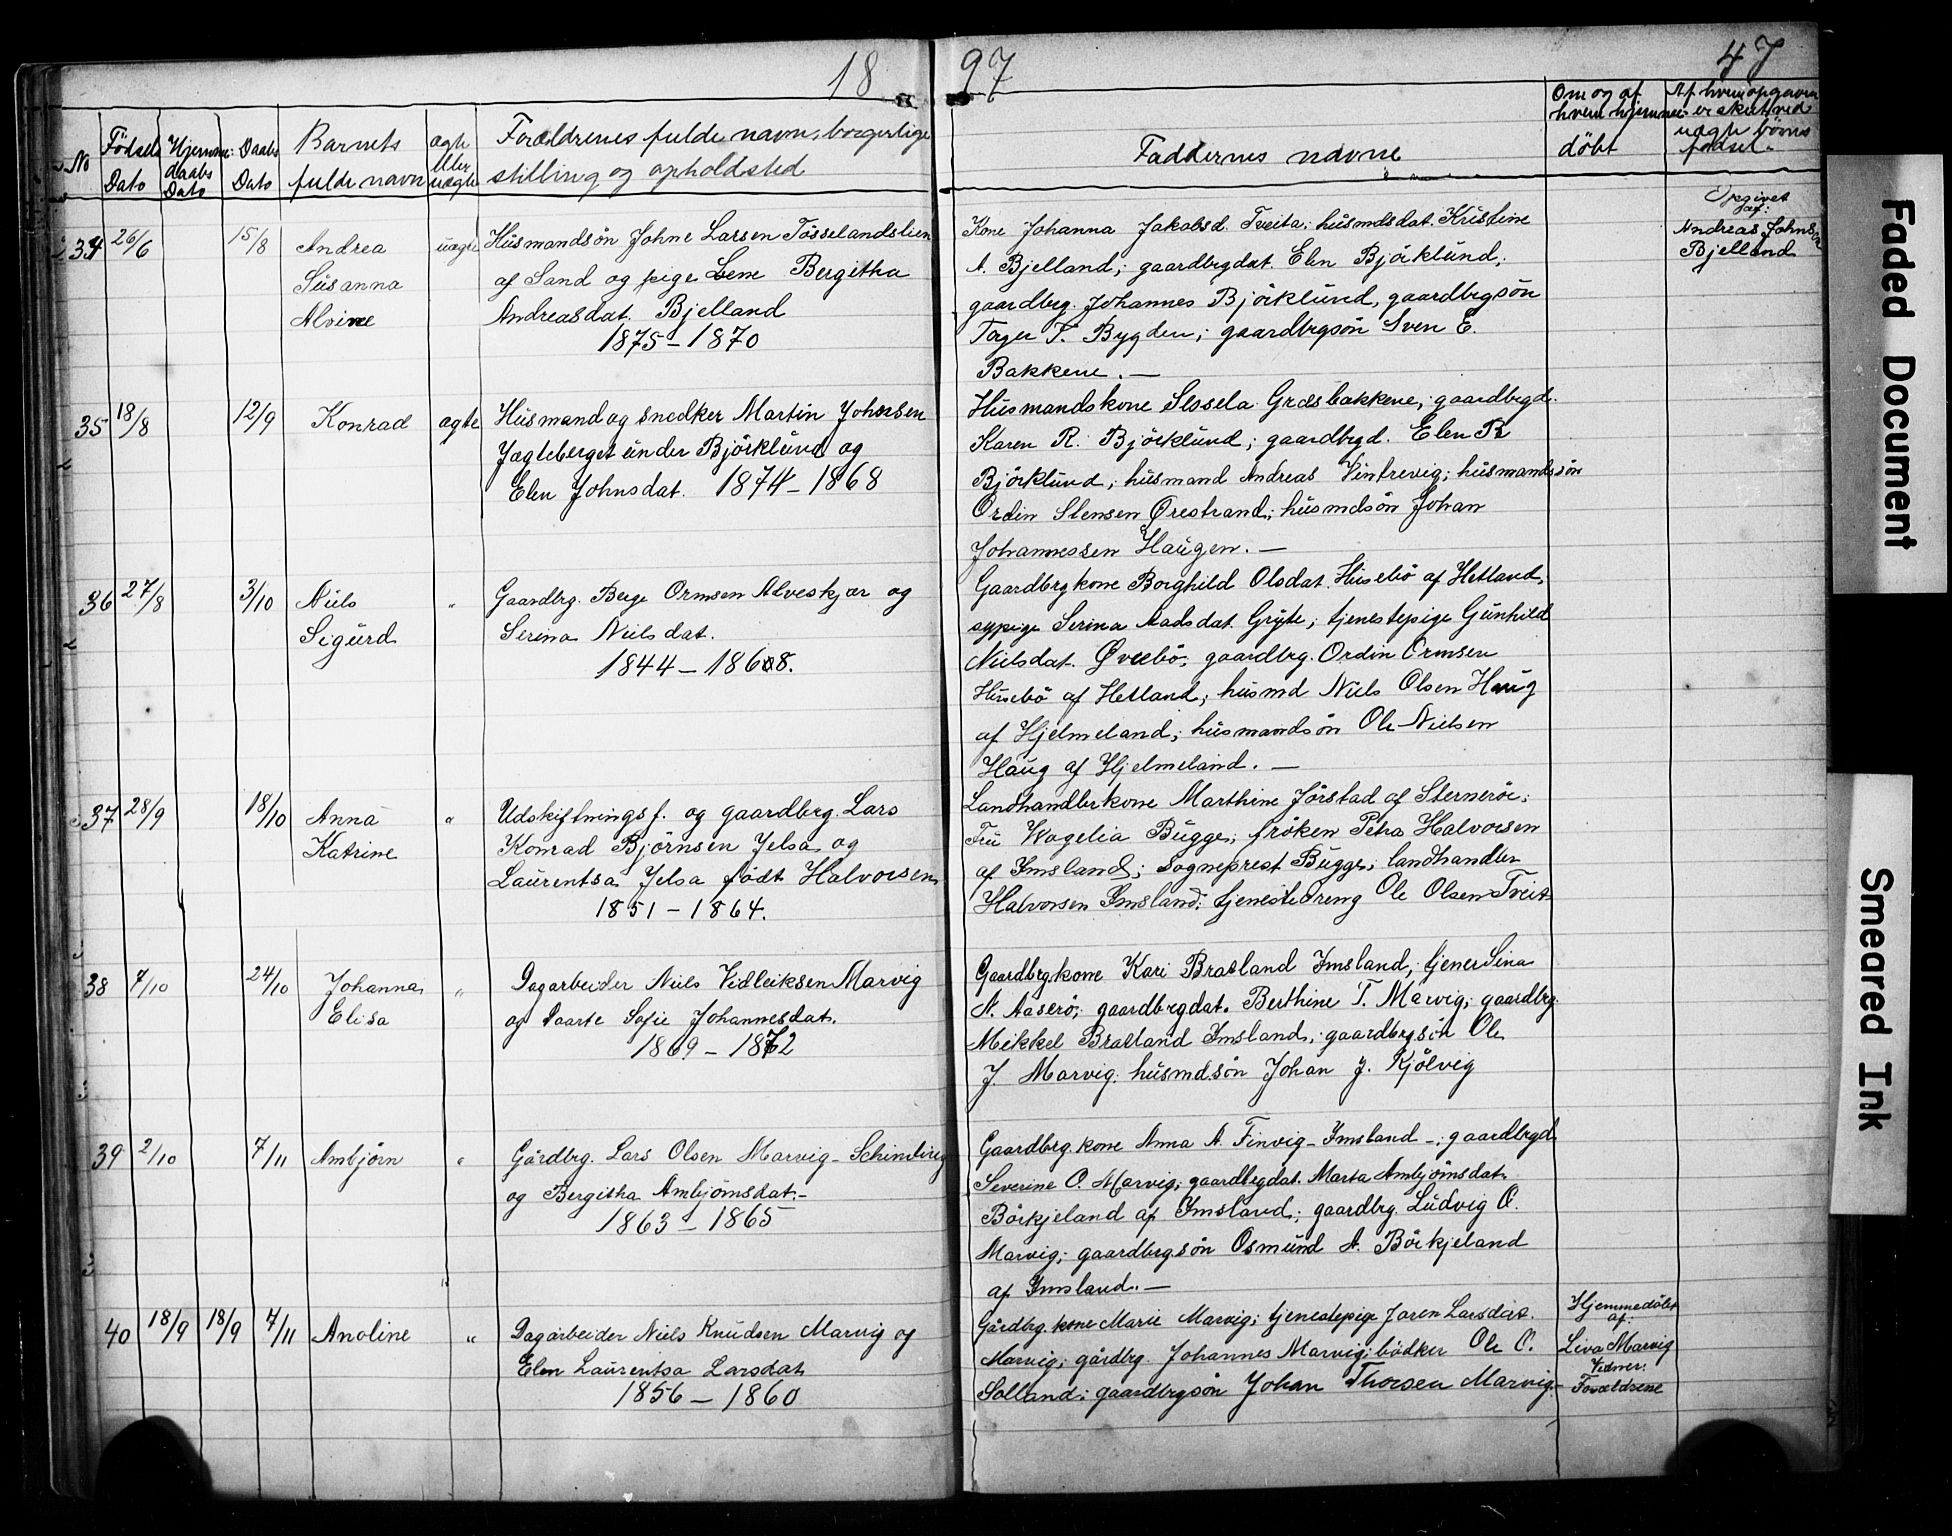 18 97 47
No
Födsels Dato
Hjemme daabs Dato
Daabs Dato
Barnets fulde navn
ægte eller uægte
Forældrenes fulde navn, borgerlige
stilling og opholdsted
Faddernes navne
Om og af
hvem hjemme-
döbt
Af hvem opgaven
er skeet ved
uægte börns
födsel.
34 26/6 15/8 Andrea
Susanna
Alvine
uægte
Husmandsön Johne Larsen Tösselandslien
af Sand og pige Lene Bergitha
Andreasdat. Bjelland
1875 - 1870
Kone Johanna Jakobsd. Tveita; husmdsdat. Kristine
A. Bjelland; gaardbrgdat. Elen Björklund;
gaardbrg. Johannes Björklund, gaardbrgsön
Torger T. Bygden; gaardbrgsön Sven E.
Bakkene. —
Opgivet
af:
Andreas Johnsen
Bjelland
35 18/8 12/9 Konrad ægte
Husmand og snedker Martin Johnsen
Jægteberget under Björklund og
Elen Johnsdat. 1874 - 1868
Husmandskone Sessela Græsbakkene; gaardbrgd.
Karen R. Björklund; gaardbrgd. Elen R
Björklund; husmand Andreas Vintrevig; husmandssön
Ordin Stensen Ørestrand; husmdsön Johan
Johannessen Haugen. —
36 27/8 3/10 Niels
Sigurd
"
Gaardbrg. Berge Ormsen Alveskjær og
Serina Nielsdat.
1844 - 1868.
Gaardbrgkone Borghild Olsdat. Husebö af Hetland,
sypige Serina Aadsdat. Gryte; tjenestepige Gunhild
Nielsdat. Øvrebö; gaardbrg. Ordin Ormsen
Husebö af Hetland; husmd Niels Olsen Haug
af Hjelmeland; husmandsön Ole Nielsen
Haug af Hjelmeland. —
37 28/9 18/10 Anna
Katrine
"
Udskiftningsf. og gaardbrg. Lars
Konrad Björnsen Jelsa og
Laurentsa Jelsa födt Halvorsen
1851 - 1864.
Landhandlerkone Marthine Jörstad af Sterneröe;
Fru Wogelia Bugge; fröken Petra Halvorsen
af Imsland; Sogneprest Bugge; landhandler
Halvorsen Imsland; tjenestedreng Ole Olsen Tveit
38 7/10 24/10 Johanna
Elisa
"
Dagarbeider Niels Vidleiksen Marvig
og Daarte Sofie Johannesdat.
1869 - 1872
Gaardbrgkone Kari Bratland Imsland; tjener Sina
N. Aaserö; gaardbrgdat. Berthine T. Marvig; gaardbrg.
Mikkel Bratland Imsland; gaardbrgsön Ole
J. Marvig; husmdsön Johan J. Kjölvig
39 2/10 7/11 Ambjörn "
Gårdbrg. Lars Olsen Marvig -
og Bergitha Ambjörnsdat. -
1863 - 1865
Gaardbrg.kone Anna A. Finvig - Imsland -; gaardbrgd.
Severine O. Marvig; gaardbrgdat. Marta Ambjörnsdat.
Börkjeland af Imsland; gaardbrg. Ludvig O.
Marvig; gaardbrgsön Osmund A. Börkjeland
af Imsland. —
40 18/9 18/9 7/11 Anoline "
Dagarbeider Niels Knudsen Marvig og
Elen Laurentsa Larsdat.
1856 - 1860
Gårdbrg.kone Marie Marvig; tjenestepige Joren Larsdat.
Marvig; gårdbrg. Johannes Marvig; bödker Ole O.
Solland; gaardbrgsön Johan Thorsen Marvig.
Hjemmedöbt
af:
Liva Marvig
Vidner:
Forældrene
Faded Document
Smeared Ink